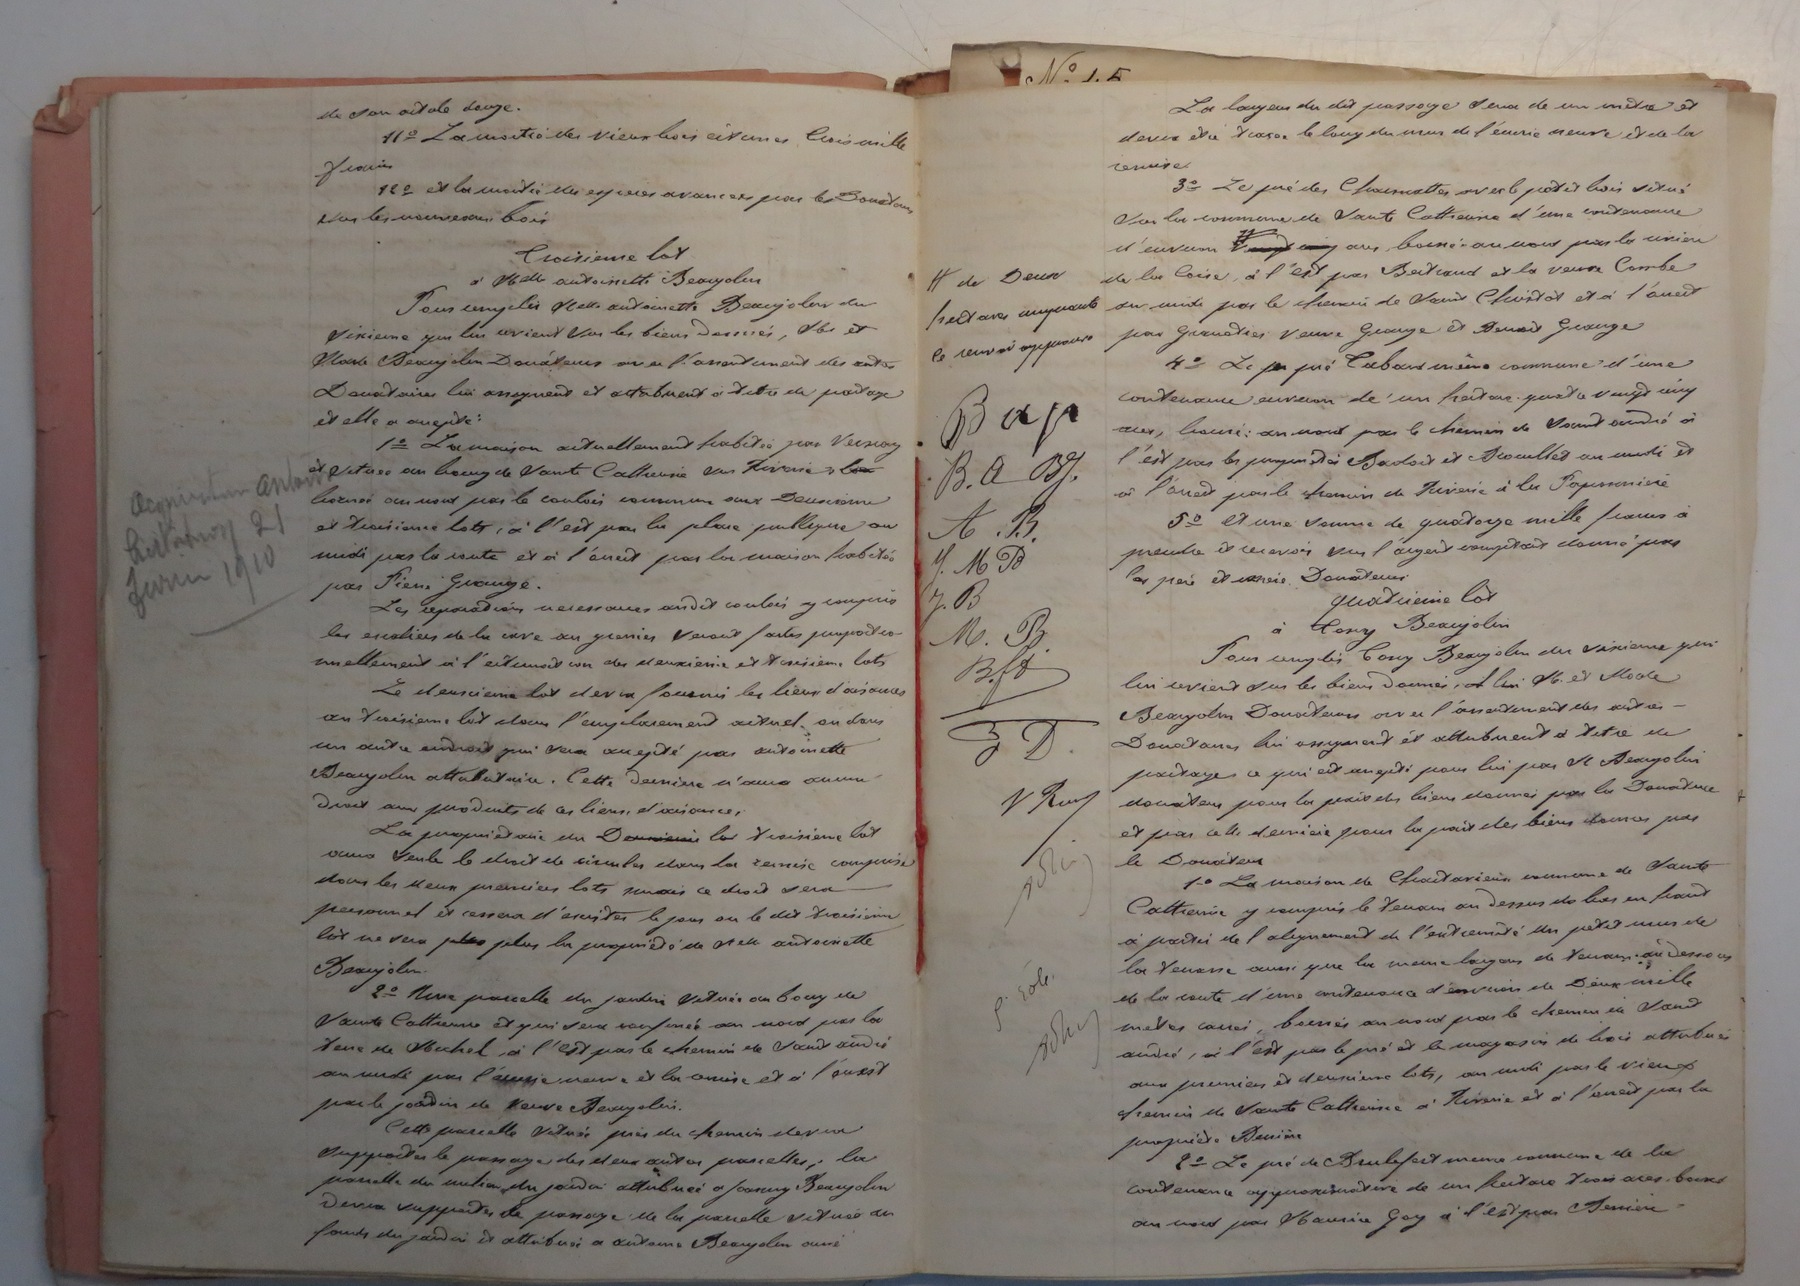 de son article douze.
11º La moitié des vieux bois estimés trois mille
francs
12º et la moitié des espèces avancées par les Donateurs
sur les nouveaux bois
Troisième lot
à Melle Antoinette Beaujolin
Pour remplir Melle Antoinette Beaujolin du
sixième qui lui revient sur les biens donnés, Mr et
Made Beaujolin Donateurs avec l'assentiment des autres
Donataires lui assignent et attribuent à titre de partage
et elle a accepté:
1º La maison actuellement habitée par Versay
et située au bourg de Sainte Catherine sur Riverie
bornée au nord par le couloir commun aux Deuxième
et troisième lots, à l'est par la place publique au
midi par la route et à l'ouest par la maison habitée
par Pierre Grange.
Les réparations nécessaires audit couloir y compris
les escaliers de la cave au grenier seront faites proportion
nellement à l'estimation des deuxième et troisième lots
Le deuxième lot devra fournir les lieux d'aisances
au troisième lot dans l'emplacement actuel, ou dans
un autre endroit qui sera accepté par Antoinette
Beaujolin attributaire. Cette dernière n'aura aucun
droit aux produits de ces lieux d'aisances.
La propriétaire du troisième lot
aura seule le droit de circuler dans la remise comprise
dans les deux premiers lots mais ce droit sera
personnel et cessera d'exister le jour où le dit troisième
lot ne sera plus la propriété de Melle Antoinette
Beaujolin.
2º Une parcelle du jardin située au bourg de
Sainte Catherine et qui sera confinée au nord par la
terre de Michel, à l'est par le chemin de Saint André
au midi par l'écurie neuve et la remise et à l'ouest
par le jardin de veuve Beaujolin.
Cette parcelle située près du chemin devra
supporter le passage des deux autres parcelles; la
parcelle du milieu du jardin attribuée à Joanny Beaujolin
devra supporter le passage de la parcelle située au
fond du jardin et attribuée à Antoine Beaujolin
Acquisition
21
Juin 1910
Nº 15
La largeur du dit passage sera de un mètre et
devra être tracé le long du mur de l'écurie neuve et de la
remise
3º Le pré des Chaumottes avec le petit bois situé
sur la commune de Sainte Catherine d'une contenance
d'environ # ares, borné: au nord par la rivière
de la Coise, à l'est par Bertrand et la veuve Combe
au midi par le chemin de Saint Christôt et à l'ouest
par veuve Grange et Benoit Grange
4º Le pré Cabaud même commune d'une
contenance environ de un hectare quatre vingt cinq
ares, borné: au nord par le chemin de Saint André à
l'est par les propriétés Badoit et au midi et
à l'ouest par le chemin de Riverie à la
5º et une somme de quatorze mille francs à
prendre et recevoir sur l'argent comptant donné par
les père et mère Donateurs
Quatrième lot
à Tony Beaujolin
Pour remplir Tony Beaujolin du sixième qui
lui revient sur les biens donnés, Mr et Made
Beaujolin Donateurs avec l'assentiment des autres
Donataires lui assignent et attribuent à titre de
partage ce qui est accepté pour lui par M Beaujolin
donateur pour la part des biens donnés par la Donatrice
et par cette dernière pour la part des biens donnés par
le Donateur
1º La maison de commune de Sainte
Catherine y compris le tenant au dessus de bas en haut
à partir de l'alignement de l'extrémité du petit mur de
la terrasse ainsi que la même largeur de au dessous
de la route d'une contenance d'environ de Deux mille
mètres carrés, bornés au nord par le chemin de Saint
André, à l'est par le pré et le magasin de bois attribués
aux premier et deuxième lots, au midi par le vieux
chemin de Sainte Catherine à Riverie et à l'ouest par la
propriété
2º Le pré de Brulefert même commune de la
contenance approximative de un hectare trois ares borné
au nord par Maurice Goy à l'est par
# de Deux
hectares cinquante
le renvoi approuvé
B. A BJ.
A. B.
J. M B
J. B
M. B.